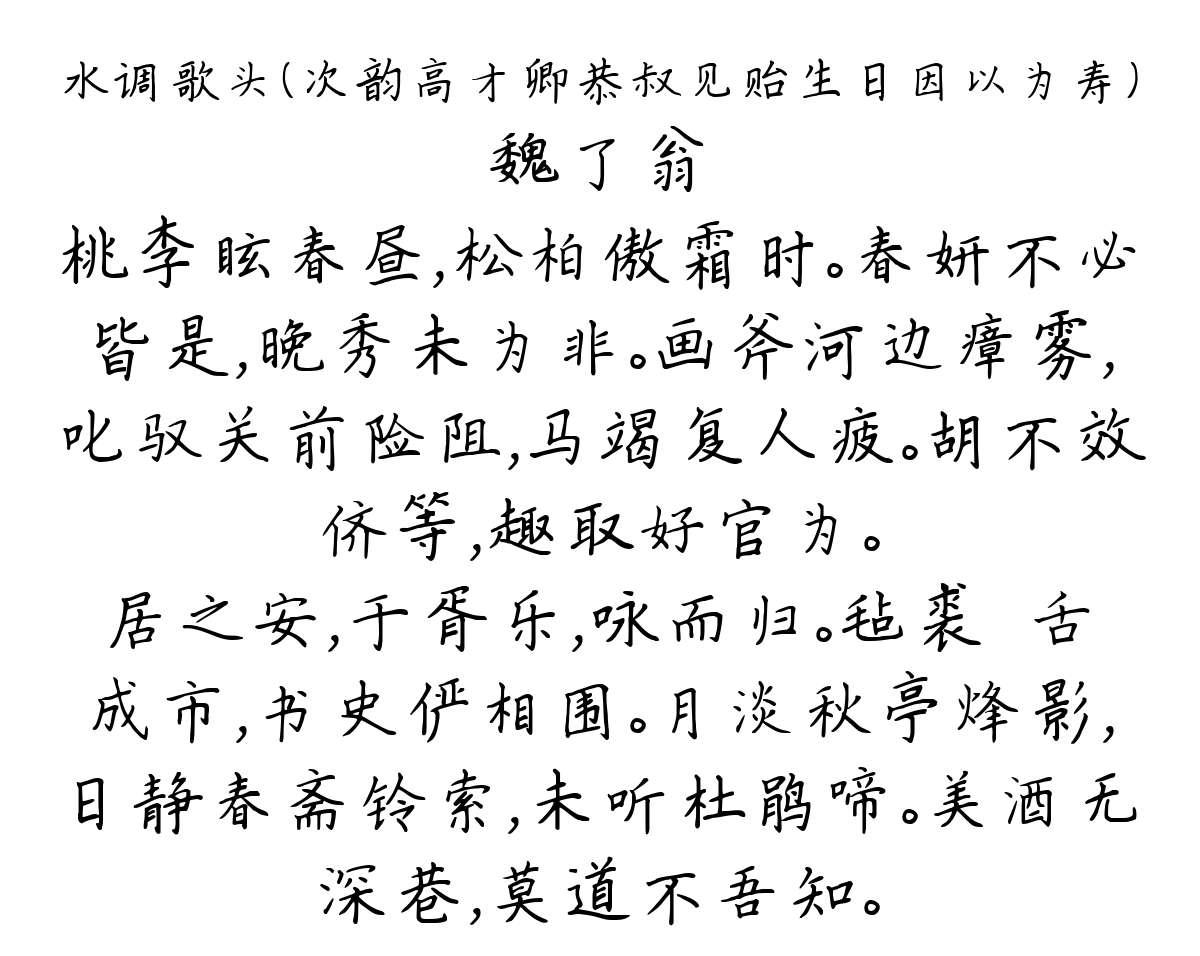 水调歌头(次韵高才卿恭叔见贻生日因以为寿)
魏了翁
桃李眩春昼,松柏傲霜时。春妍不必
皆是,晚秀未为非。画斧河边瘴雾,
叱驭关前险阻,马竭复人疲。胡不效
侪等,趣取好官为。
居之安,于胥乐,咏而归。毡裘 舌
成市,书史俨相围。月淡秋亭烽影,
日静春斋铃索,未听杜鹃啼。美酒无
深巷,莫道不吾知。